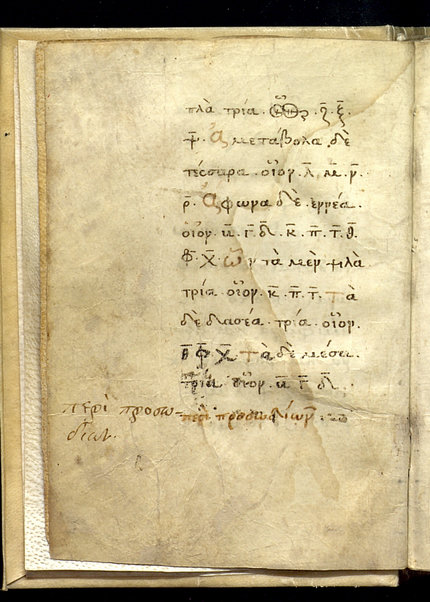 πλὰ τρία. οἷον. ζ̄. ξ̄.
ψ̄. Ἀμετάβολα δὲ
τέσσαρα. οἷον. λ̄. μ̄. ν̄.
ρ̄. Ἄφωνα δὲ ἐννέα.
οἷον. β̄. γ̄. δ̄. κ̄. π̄. τ̄. θ̄.
φ̄. χ̄. ὧν τὰ μὲν ψιλὰ
τρία οἷον. κ̄. π̄. τ̄. τὰ
δὲ δασέα τρία. οἷον.
θ̄ φ̄. χ̄. τὰ δὲ μέσα.
τρία οἷον. β̄ γ̄ δ̄.
περὶ προσωδιῶν
περὶ προσω
διῶν.